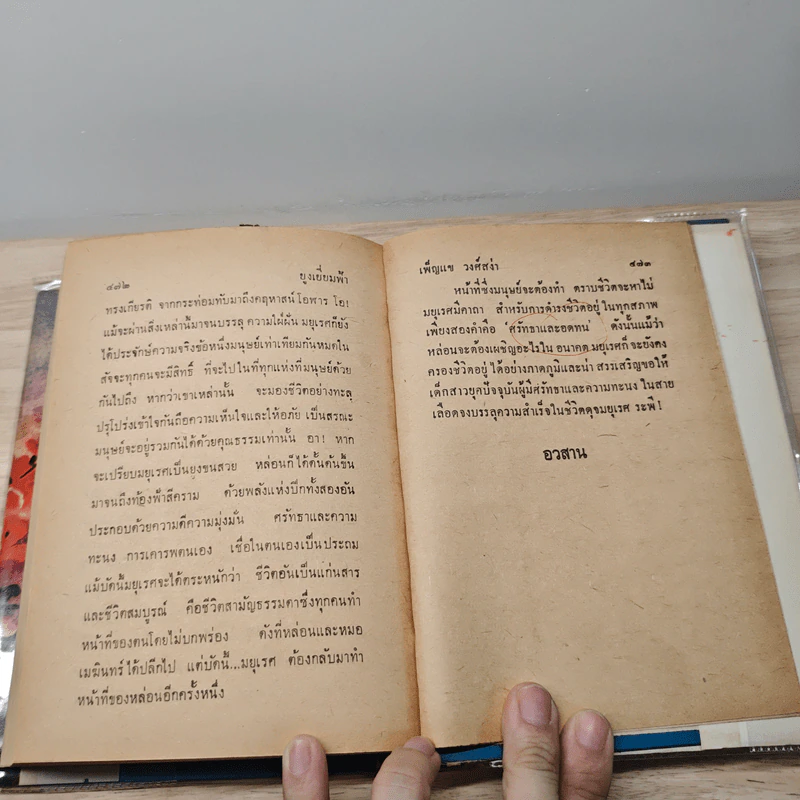 ๔๗๒ ยูงเยี่ยมฟ้า
ทรงเกียรติ จากกระท่อมทับมาถึงคฤหาสน์โอฬาร โอ!
แม้จะผ่านสิ่งเหล่านี้มาจนบรรลุ ความใฝ่ฝัน มยุเรศก็ยัง
ได้ประจักษ์ความจริงข้อหนึ่งมนุษย์เท่าเทียมกันหมดใน
สัจจะทุกคนจะมีสิทธิ์ ที่จะไปในที่ทุกแห่งที่มนุษย์ด้วย
กันไปถึง หากว่าเขาเหล่านั้น จะมองชีวิตอย่างทะลุ
ปรุโปร่งเข้าใจกันถือความเห็นใจและให้อภัย เป็นสรณะ
มนุษย์จะอยู่รวมกันได้ด้วยคุณธรรมเท่านั้น อา! หาก
จะเปรียบมยุเรศเป็นยูงขนสวย หล่อนก็ได้ดั้นด้นขึ้น
มาจนถึงท้องฟ้าสีคราม ด้วยพลังแห่งปีกทั้งสองอัน
ประกอบด้วยความดีความมุ่งมั่น ศรัทธาและความ
ทะนง การเคารพตนเอง เชื่อในตนเองเป็นประถม
แม้บัดนี้มยุเรศจะได้ตระหนักว่า ชีวิตอันเป็นแก่นสาร
และชีวิตสมบูรณ์ คือชีวิตสามัญธรรมดาซึ่งทุกคนทำ
หน้าที่ของตนโดยไม่บกพร่อง ดังที่หล่อนและหมอ
เมฆินทร์ได้ปลีกไป แต่บัดนี้...มยุเรศ ต้องกลับมาทำ
หน้าที่ของหล่อนอีกครั้งหนึ่ง
เพ็ญแข วงศ์สง่า ๔๗๓
หน้าที่ซึ่งมนุษย์จะต้องทำ ตราบชีวิตจะหาไม่
มยุเรศมีคาถา สำหรับการดำรงชีวิตอยู่ ในทุกสภาพ
เพียงสองคำคือ 'ศรัทธาและอดทน' ดังนั้นแม้ว่า
หล่อนจะต้องเผชิญอะไรใน อนาคต มยุเรศก็ จะยังคง
ครองชีวิตอยู่ ได้อย่างภาคภูมิและน่า สรรเสริญขอให้
เด็กสาวยุคปัจจุบันผู้มีศรัทธาและความทะนง ในสาย
เลือดจงบรรลุความสำเร็จในชีวิตดุจมยุเรศ ระพี!
อวสาน